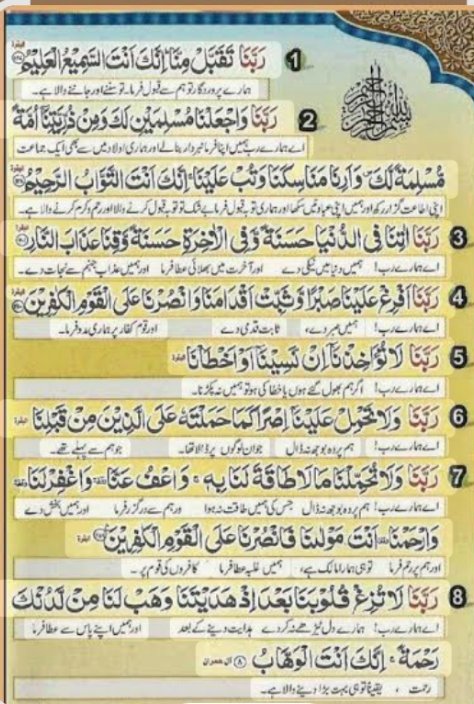 1 رَبَّنَا تَقَبَّلْ مِنَّا اِنَّكَ اَنْتَ السَّمِيْعُ الْعَلِيْمُ
ہمارے پروردگار تو ہم سے قبول فرما۔ تو سننے اور جاننے والا ہے۔
2 رَبَّنَا وَاجْعَلْنَا مُسْلِمَيْنِ لَكَ وَمِنْ ذُرِّيَّتِنَا اُمَّةً
اے ہمارے رب ہمیں اپنا فرمانبردار بنا لے اور ہماری اولاد میں سے بھی ایک جماعت
مُّسْلِمَةً لَّكَ وَاَرِنَا مَنَاسِكَنَا وَتُبْ عَلَيْنَا اِنَّكَ اَنْتَ التَّوَّابُ الرَّحِيْمُ
اپنی اطاعت گزار رکھ اور ہمیں اپنی عبادتیں سکھا اور ہماری توبہ قبول فرما بے شک تو توبہ قبول کرنے والا اور رحم و کرم کرنے والا ہے۔
3 رَبَّنَا اٰتِنَا فِى الدُّنْيَا حَسَنَةً وَّفِى الْاٰخِرَةِ حَسَنَةً وَّقِنَا عَذَابَ النَّارِ
اے ہمارے رب! ہمیں دنیا میں نیکی دے اور آخرت میں بھلائی عطا فرما اور ہمیں عذاب جہنم سے نجات دے۔
4 رَبَّنَا اَفْرِغْ عَلَيْنَا صَبْرًا وَّثَبِّتْ اَقْدَامَنَا وَانْصُرْنَا عَلَى الْقَوْمِ الْكٰفِرِيْنَ
اے ہمارے رب! ہمیں صبر دے، ثابت قدمی دے اور قوم کفار پر ہماری مدد فرما۔
5 رَبَّنَا لَا تُؤَاخِذْنَا اِنْ نَّسِيْنَا اَوْ اَخْطَاْنَا
اے ہمارے رب! اگر ہم بھول گئے ہوں یا خطا کی ہو تو ہمیں نہ پکڑنا۔
6 رَبَّنَا وَلَا تَحْمِلْ عَلَيْنَا اِصْرًا كَمَا حَمَلْتَهٗ عَلَى الَّذِيْنَ مِنْ قَبْلِنَا
اے ہمارے رب! ہم پر وہ بوجھ نہ ڈال جو ان لوگوں پر ڈالا تھا۔ جو ہم سے پہلے تھے۔
7 رَبَّنَا وَلَا تُحَمِّلْنَا مَا لَا طَاقَةَ لَنَا بِهٖ وَاعْفُ عَنَّا وَاغْفِرْ لَنَا
اے ہمارے رب! ہم پر وہ بوجھ نہ ڈال جس کی ہمیں طاقت نہ ہو اور ہم سے درگزر فرما اور ہمیں بخش دے
وَارْحَمْنَا اَنْتَ مَوْلٰىنَا فَانْصُرْنَا عَلَى الْقَوْمِ الْكٰفِرِيْنَ
اور ہم پر رحم فرما تو ہی ہمارا مالک ہے، ہمیں غلبہ عطا فرما کافروں کی قوم پر۔
8 رَبَّنَا لَا تُزِغْ قُلُوْبَنَا بَعْدَ اِذْ هَدَيْتَنَا وَهَبْ لَنَا مِنْ لَّدُنْكَ
اے ہمارے رب! ہمارے دل ٹیڑھے نہ کر دے ہدایت دینے کے بعد اور ہمیں اپنے پاس سے عطا فرما
رَحْمَةً اِنَّكَ اَنْتَ الْوَهَّابُ ۸ آل عمران
رحمت، یقیناً تو ہی بہت بڑا دینے والا ہے۔